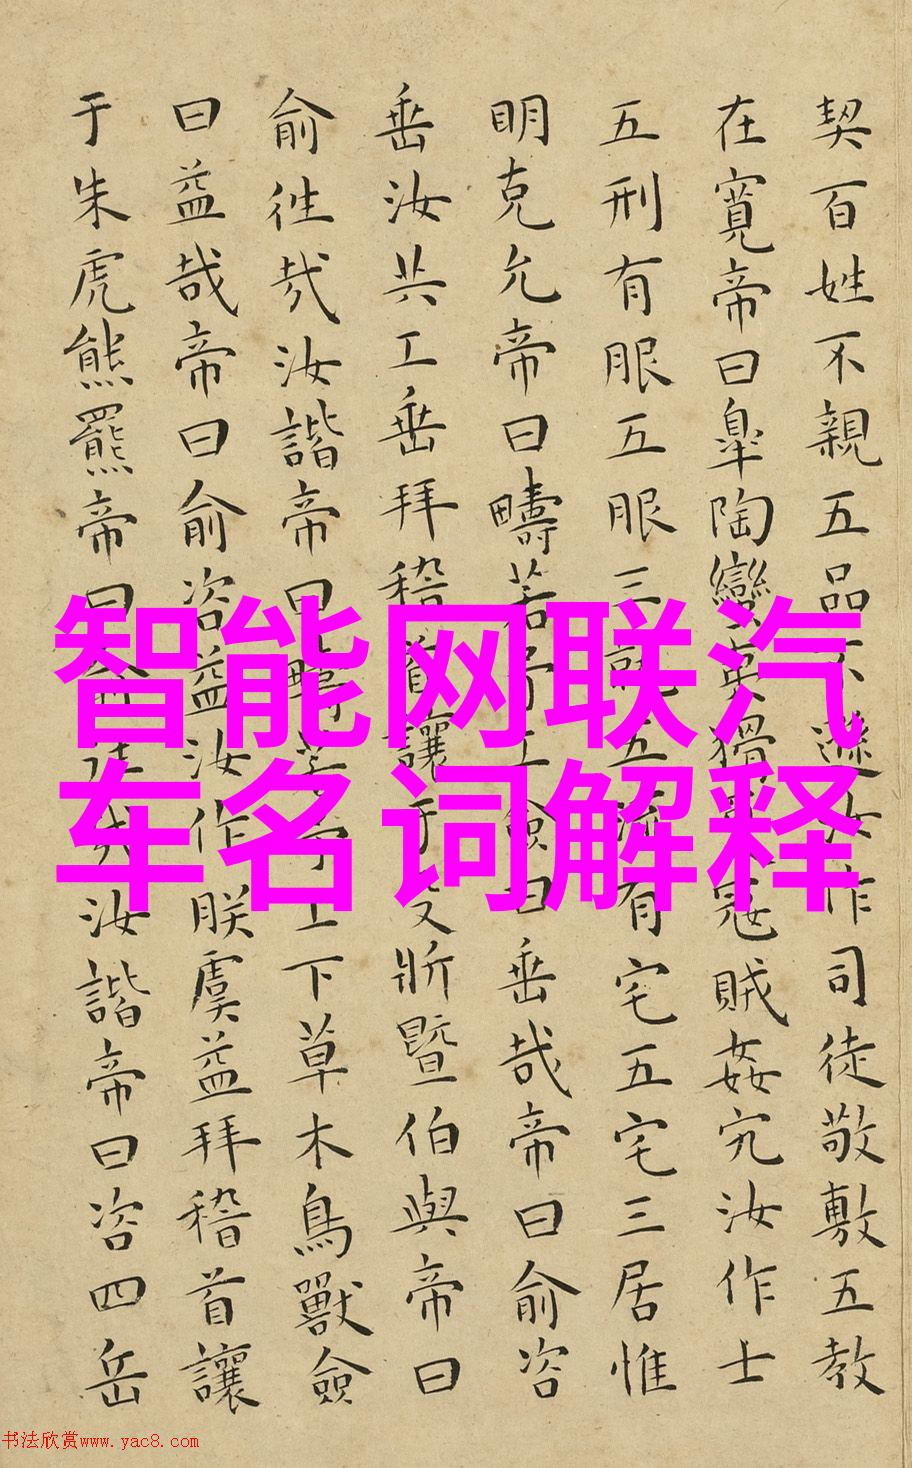 契百姓不親五品不遜汝作司徒敬敷五教
在寬帝曰臯陶蠻夷猾寇賊姦宄汝作士
五刑有服五服三就五流有宅五宅三居惟
明克允帝曰疇若予工僉曰垂哉帝曰俞咨
垂汝共工垂拜稽首讓于殳斨暨伯與帝曰
俞往哉汝諧帝曰疇若予上下草木鳥獸僉
曰益哉帝曰俞咨益汝作朕虞益拜稽首讓
于朱虎熊羆帝曰俞往哉汝諧帝曰咨四岳
智能网联汽
车名词解释
书法欣赏www.yac8.com